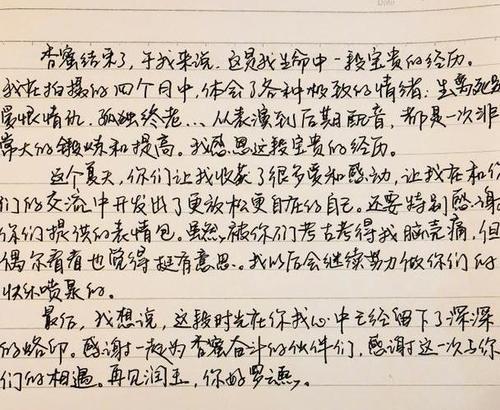 香蜜结束了，于我来说，这是我生命中一段宝贵的经历。
我在拍摄的四个月中，体会了各种极致的情绪：生离死别
爱恨情仇，孤独终老…从表演到后期配音，都是一次非
常大的锻炼和提高。我感恩这段宝贵的经历。
这个夏天，你们让我收获了很多爱和感动，让我在和你
们的交流中开发出了更放松更自在的自己。还要特别感谢
你们提供的表情包。虽然被你们考古考得我脑壳痛，但
偶尔看看也觉得挺有意思。我以后会继续努力做你们的
快乐喷泉的。
最后，我想说，这段时光在你我心中已经留下了深深
的烙印。感谢一起为香蜜奋斗的伙伴们，感谢这一次与你
们的相遇。再见润玉，你好罗云熙。